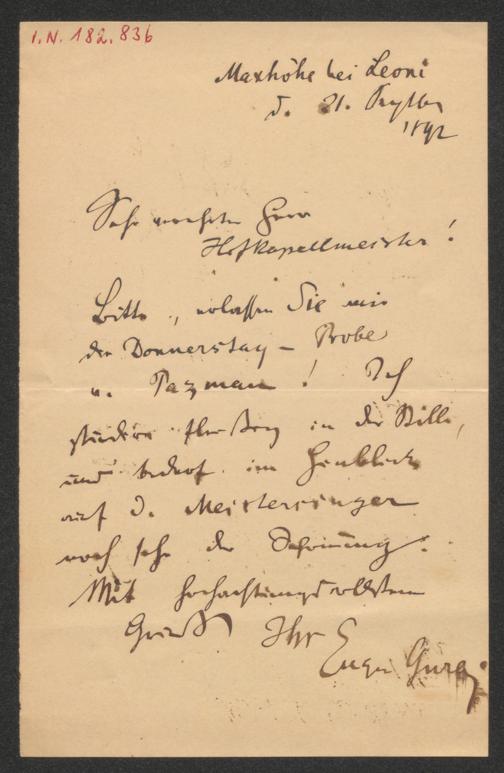 I.N. 182.836
Maxhöhe bei Leoni
d. 21. Septbr
1892
Sehr verehrter Herr
Hofkapellmeister!
Bitte, erlassen Sie mir
die Donnerstag – Probe
v. Pazman! Ich
studire in der Stille,
und bedarf im Hinblick
auf d. Meistersinger
noch sehr der Schonung.
Mit hochachtungsvollstem
Gruß Ihr
Eugen Gura